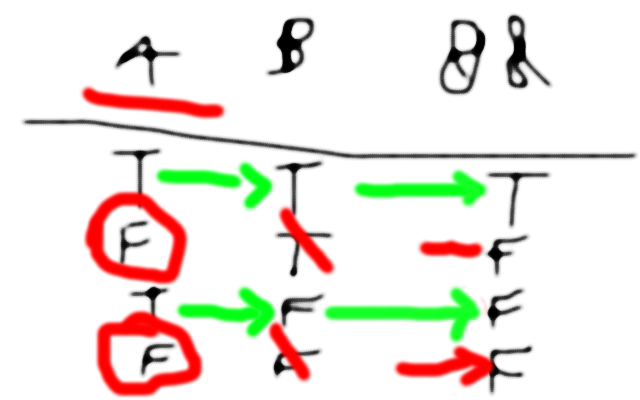 A B
T T T
F T F
T F F
F F F